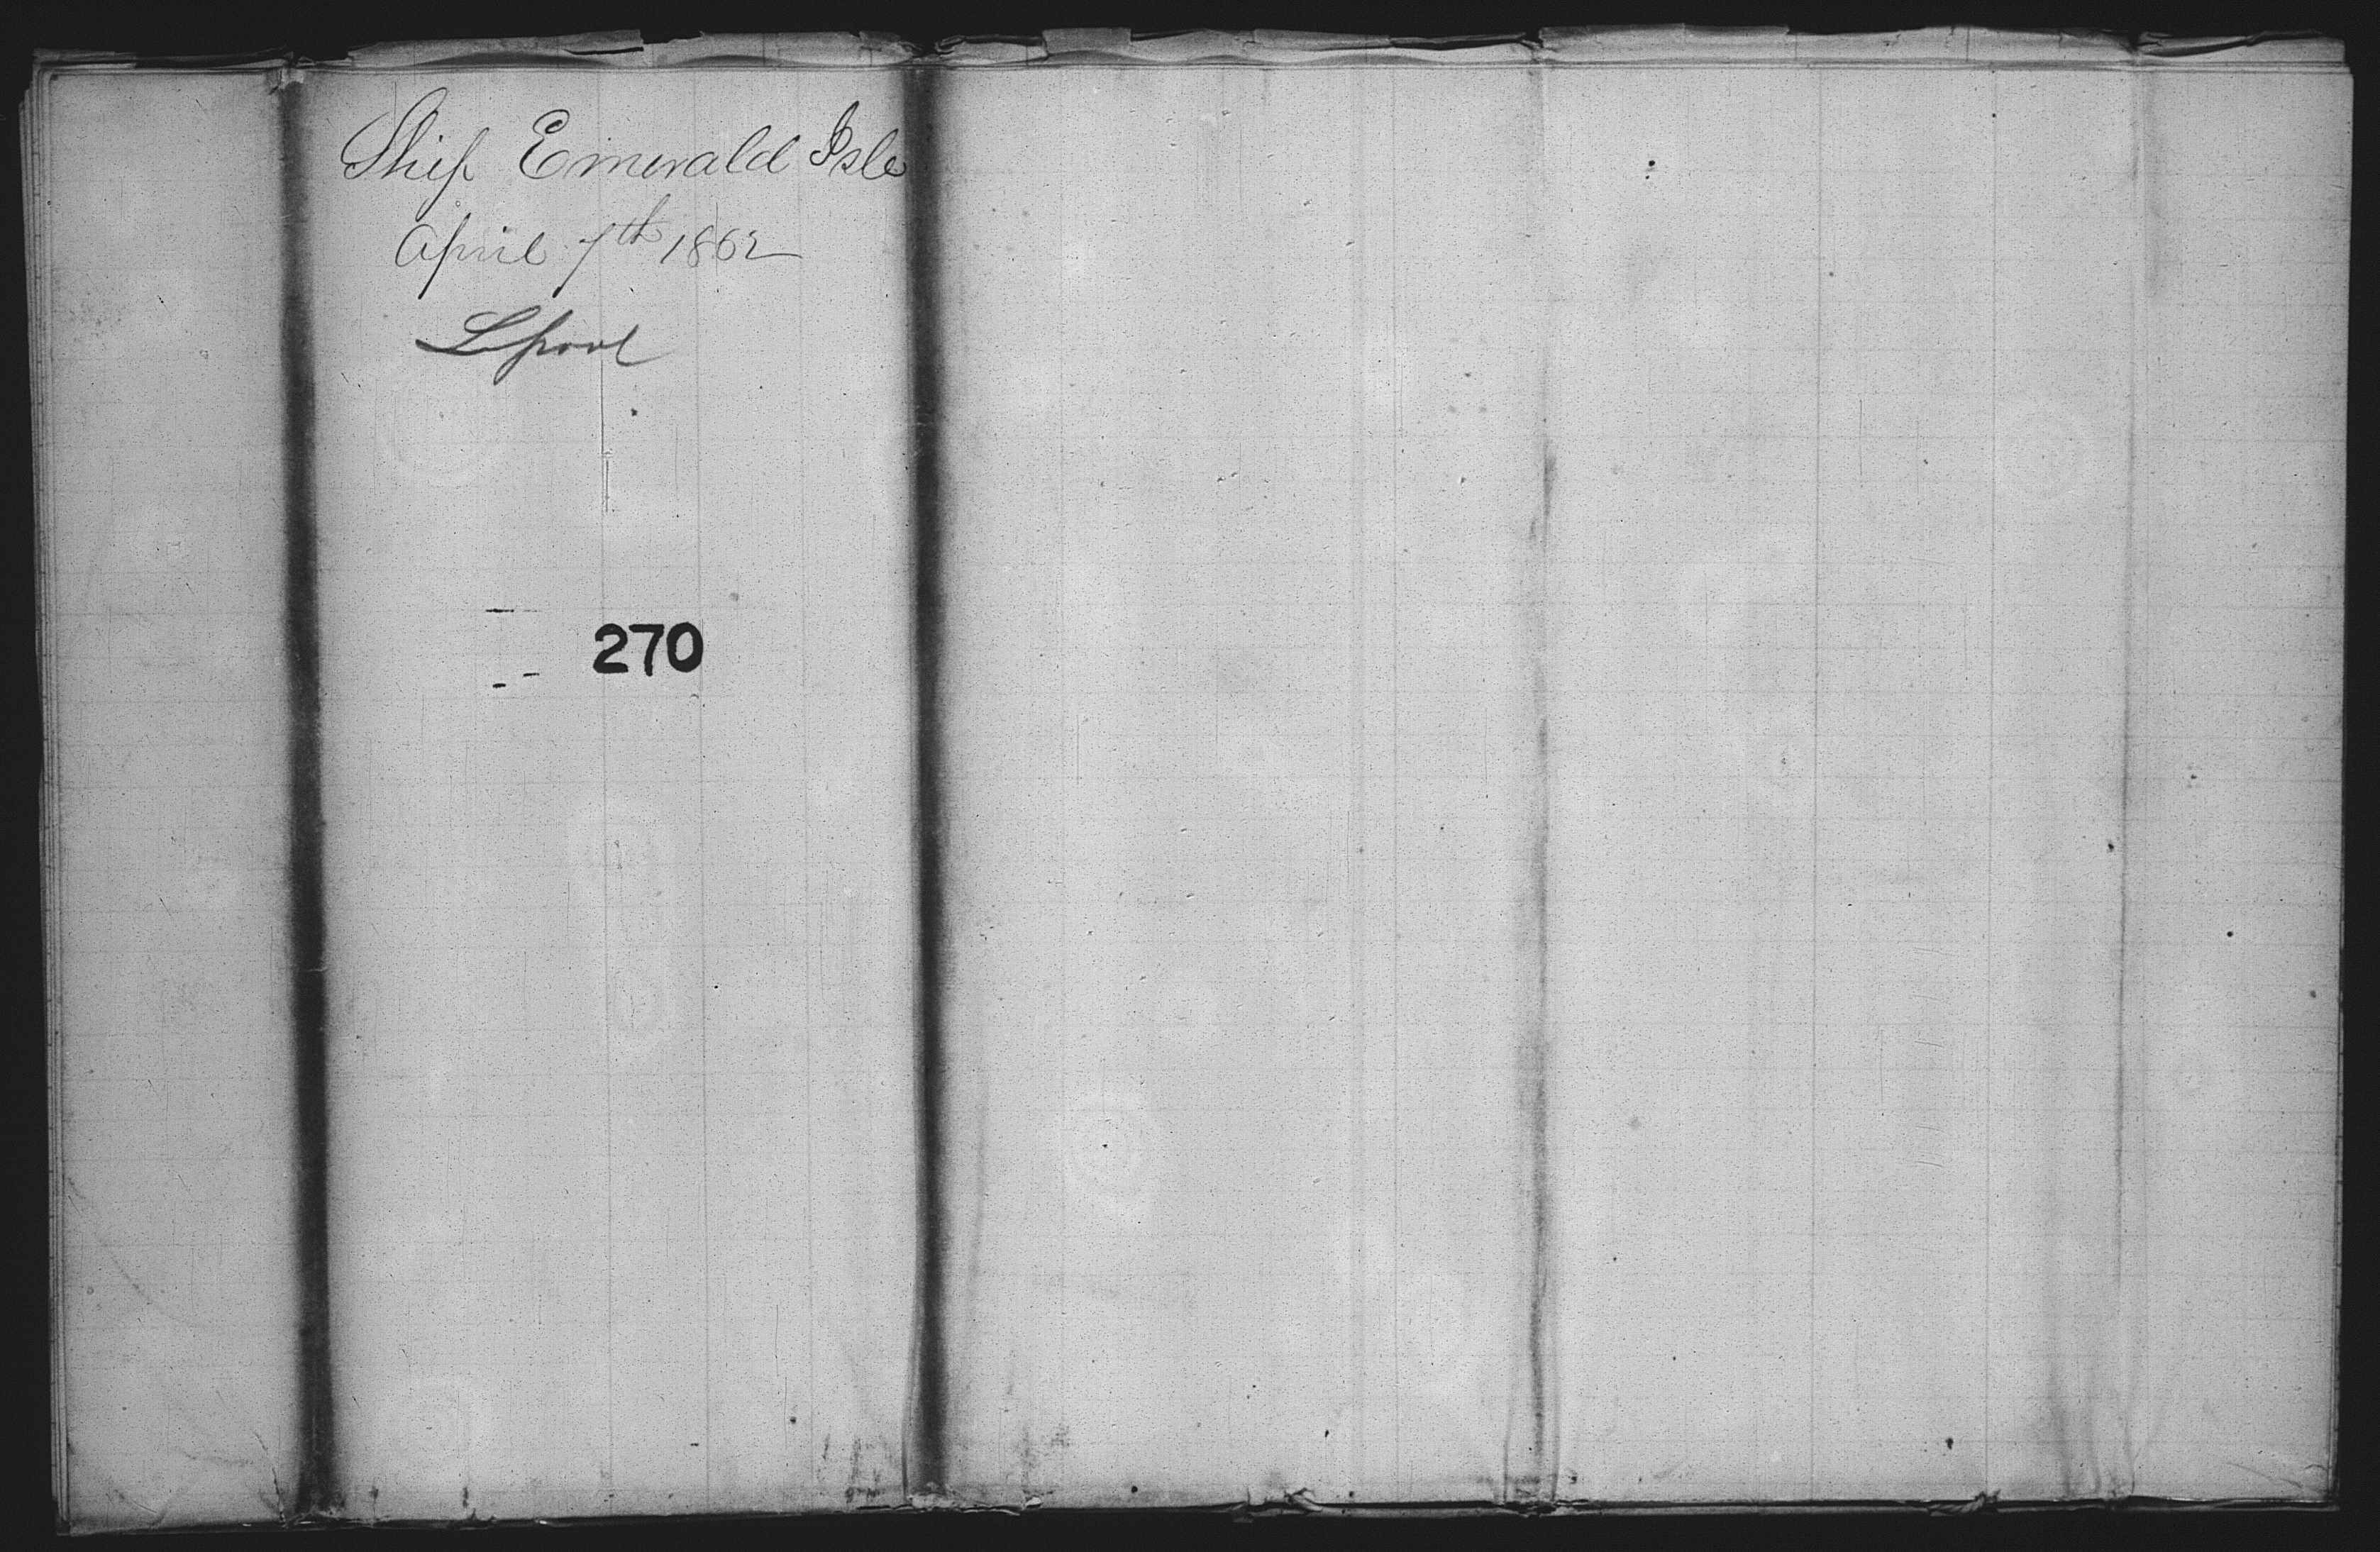 Ship Emerald Isle
April 7th 1862
Lpool
270